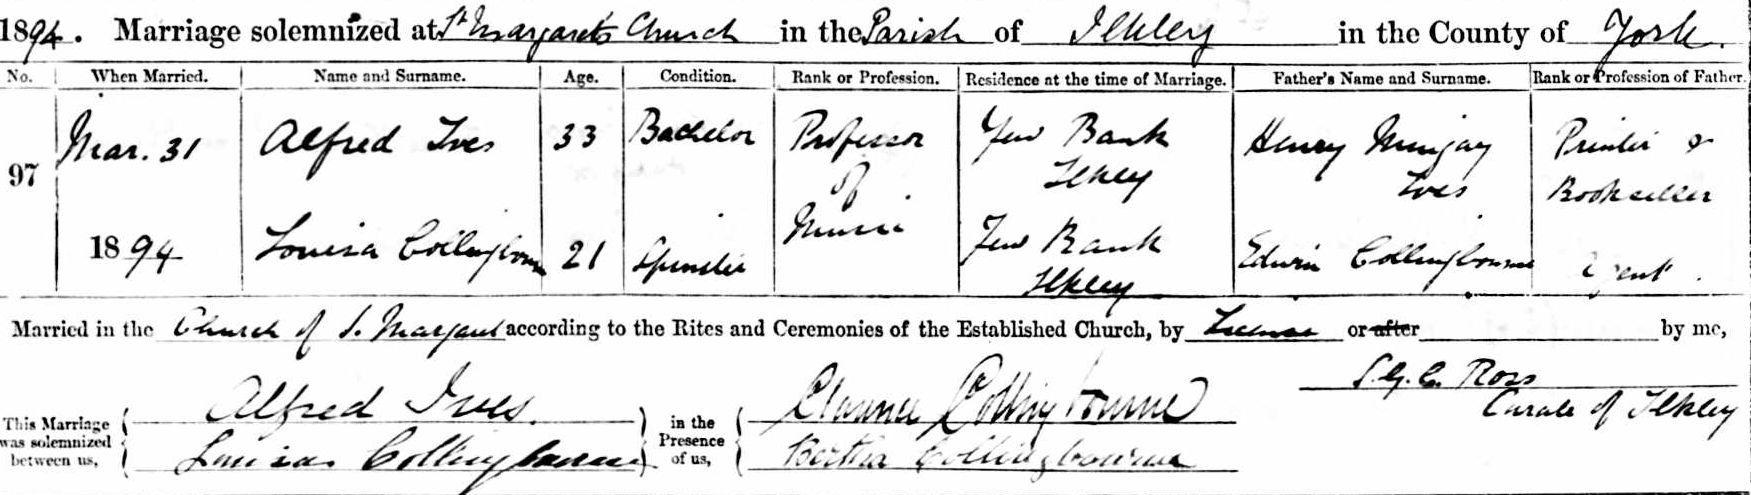 1894. Marriage solemnized at St Margaret's Church in the Parish of Ilkley in the County of York.
No. When Married. Name and Surname. Age. Condition. Rank or Profession. Residence at the time of Marriage. Father's Name and Surname. Rank or Profession of Father.
97 Mar. 31 Alfred Ives 33 Bachelor Professor of Music Yew Bank Ilkley Henry Mingay Ives Printer & Bookseller
1894 Louisa Collingbourne 21 Spinster Yew Bank Ilkley Edwin Collingbourne Agent.
Married in the Church of S. Margaret according to the Rites and Ceremonies of the Established Church, by Licence or after by me,
Ross
Curate of Ilkley
This Marriage was solemnized between us, Alfred Ives. in the Presence of us, Clarence Collingbourne
Louisa Collingbourne Bertha Collingbourne